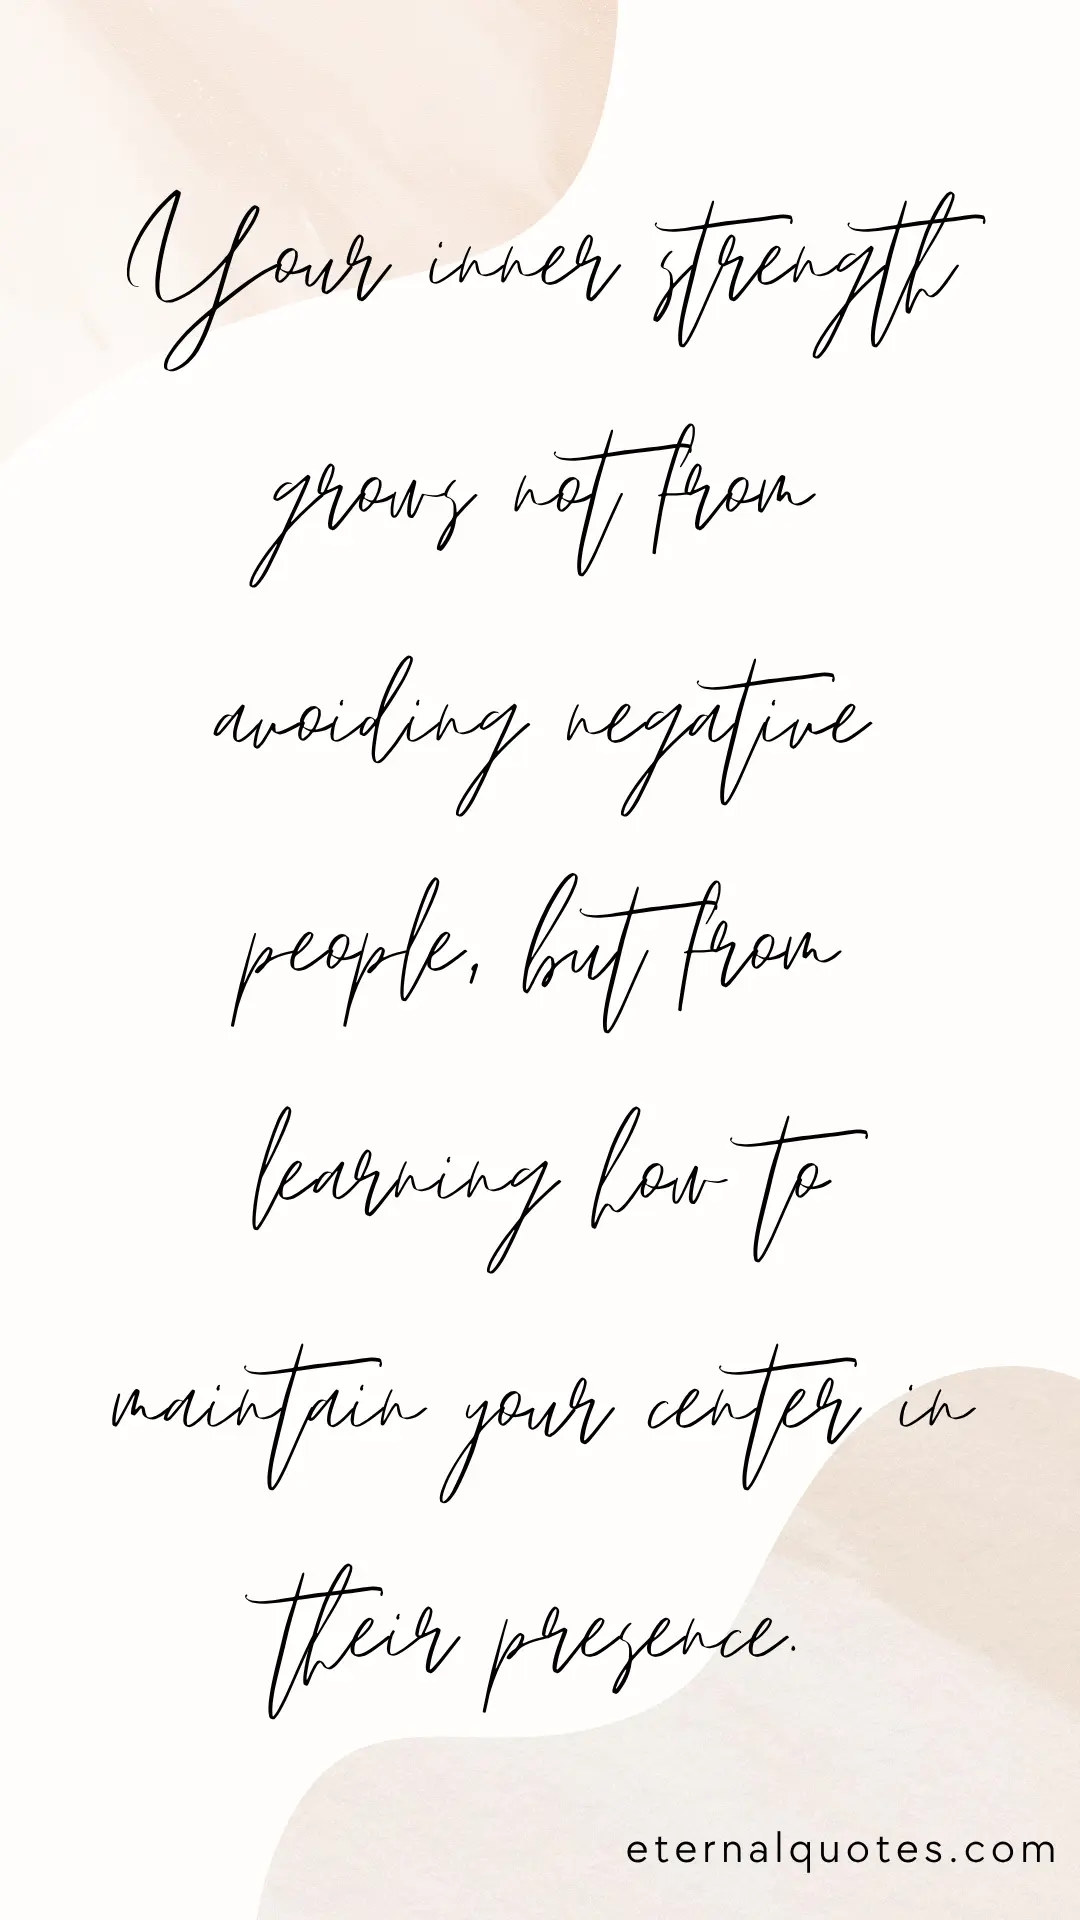 Your inner strength
grows not from
avoiding negative
people, but from
learning how to
maintain your center in
their presence.
eternalquotes.com